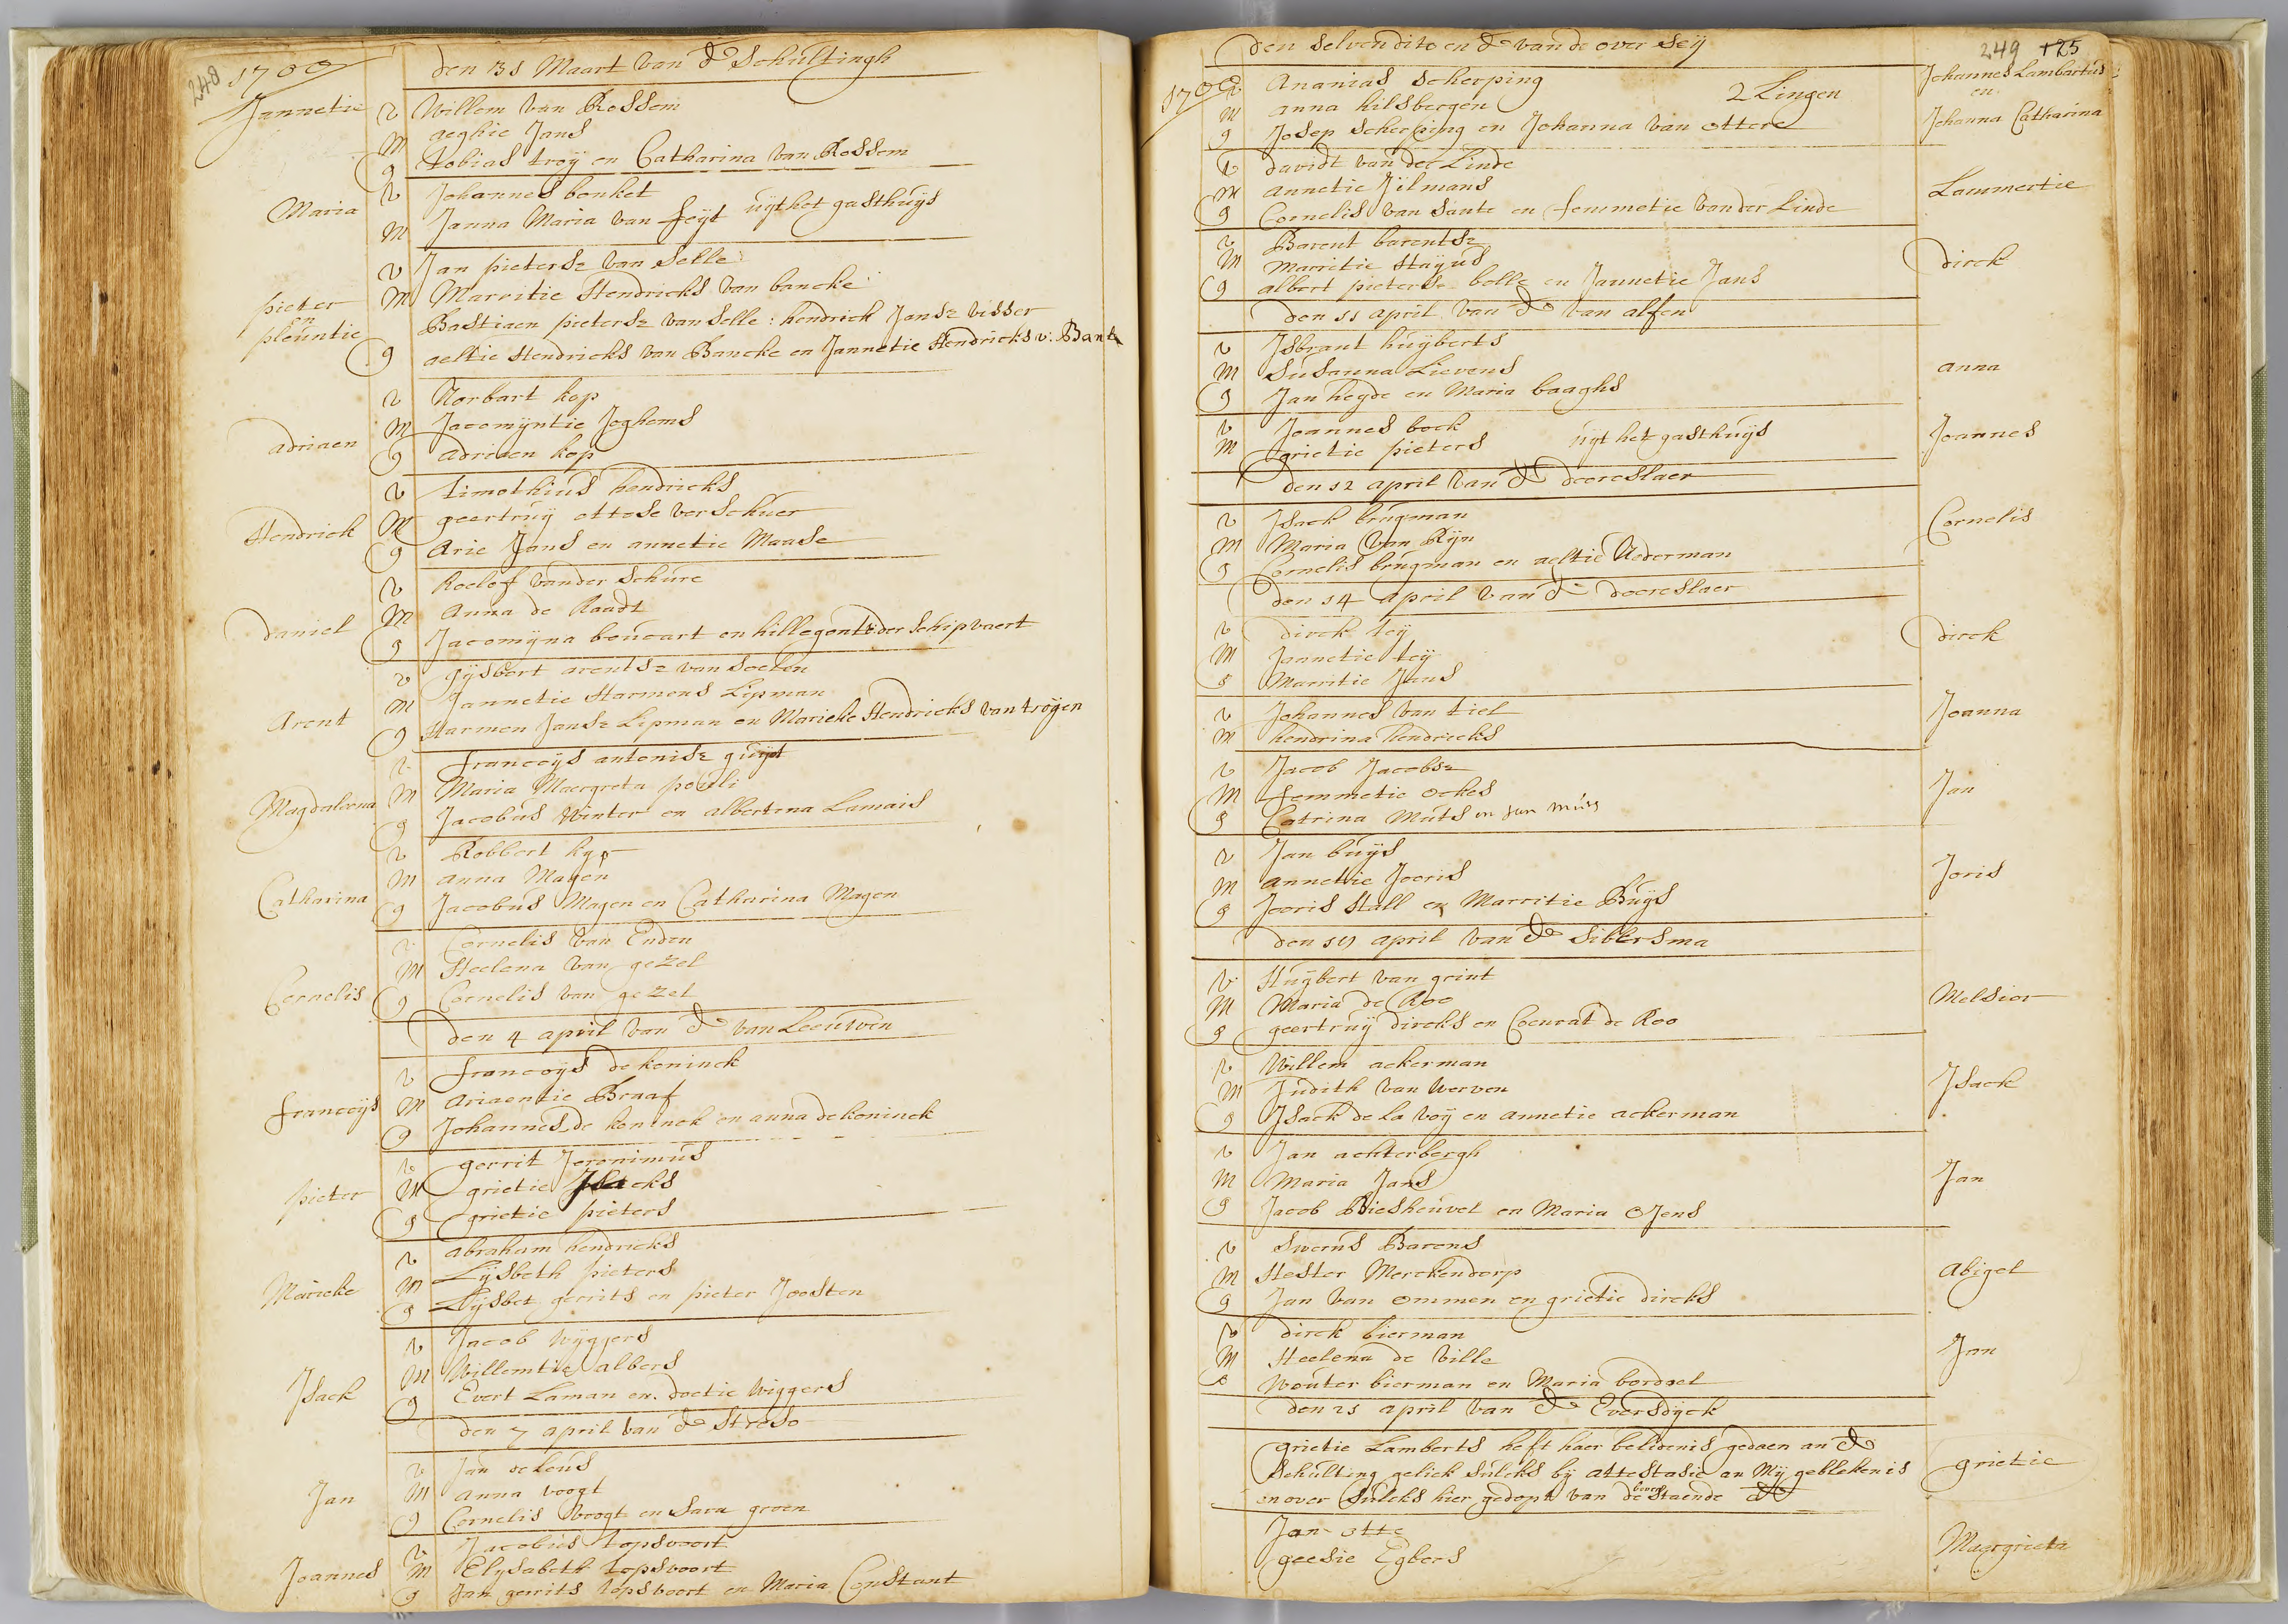 248 1700
den 31 Maart van dE Schultingh
Jannetie
v Willem van Rossem
M aeghie Jans
g tobias troÿ en Catharina van Rossem
Maria
v Johannes bonket
M Janna Maria van feÿt uÿt het gasthuÿs
pieter
en
pleuntie
v Jan pietersz van Selle
M Marritie Hendricks van bancke
Bastiaen pietersz van Selle : hendrick Jansz visser
g aeltie Hendricks van Bancke en Jannetie Hendricks v: Banck
adriaen
v Norbart kop
M Jacomÿntie Joghems
g adriaen kop
Hendrick
v timothius hendricks
M geertruÿ ottese verschuer
g Arie Jans en annetie Maase
daniel
v Roelof vander Schure
M Anna de Raadt
g Jacomÿna boucart en hillegont vder Schipvaert
Arent
v gÿsbert arentsz van Soelen
M Jannetie Harmens Lipman
g Harmen Jansz Lipman en Marieke Hendricks van troÿen
Magdaleena
v francoÿs antonisz guÿt
M Maria Maergreta pouli
g Jacobus Winter en albertina Lamais
Catharina
v Robbert kyp
M anna Magen
g Jacobus Magen en Catharina Magen
Cornelis
v Cornelis van Enden
M Heelena van gezel
g Cornelis van gezel
den 4 april van dE van Leeuwen
francoÿs
v francoÿs de koninck
M Ariaentie Braaf
g Johannes de koninck en anna de koninck
pieter
v gerrit Jeronimus
M grietie Isacks
g grietie pieters
Marieke
v abraham hendricks
M Lÿsbeth pieters
g Lÿsbet gerrits en pieter Joosten
Isack
v Jacob Wÿgjers
M Willemtie albers
g Evert Laman en doetie Wiggers
den 7 april van dE Streso
Jan
v Jan deleus
M anna voogt
g Cornelis voogt en Sara groen
Joannes
v Jacobus topsvoort
M Elÿsabeth topsvoort
g Jan gerrits topsvoort en Maria Constant
den selven dito en dE van de over Seÿ
249 125
1700
v Ananias scherping
M anna hilsbergen 2 Lingen
g Josep scherping en Johanna van ottere
Johannes Lambartus
en
Johanna Catharina
v davidt van der Linde
M annetie Jilmans
g Cornelis van Sante en femmetie vander Linde
Lammertie
v Barent barentsz
M Marritie Staÿus
g albert pietersz bolle en Jannetie Jans
dirck
den 11 april van dE van alfen
v Isbrant huÿberts
M Susanna Lievens
g Jan heÿde en Maria baaghs
anna
v Joannes bock
M grietie pieters uÿt het gasthuÿs
Joannes
den 12 april van dE deoreslaer
v Isack brugman
M Maria van Rÿn
g Cornelis brugman en aeltie Nederman
Cornelis
den 14 april van dE deoreslaer
v dirck teÿ
M Jannetie teÿ
g Marritie Jans
dirck
v Johannes van tiel
M hendrina hendricks
Joanna
v Jacob Jacobsz
M femmetie ockes
g Catrina Muts en Jan Muts
Jan
v Jan buÿs
M annetie Jooris
g Jooris Stall en Marritie Buÿs
Joris
den 17 april van dE Sibersma
v Huÿbert van grint
M Maria de Roo
g geertruÿ dircks en Coenrat de Roo
Melsior
v Willem ackerman
M Judith van Werven
g Isack de la voÿ en annetie ackerman
Isack
v Jan achterbergh
M Maria Jans
g Jacob Biesheuvel en Maria OJens
Jan
v Swerus Barens
M Hester Merckendorp
g Jan van ommen en grietie dircks
Abigel
v dirck bierman
M Heelena de Ville
g Wouter bierman en Maria bordael
Jan
den 21 april van dE Eversdÿck
grietie Lamberts heft haer belidenis gedaen an dE
Schulting gelick sulcks bÿ attestasie an Mÿ geblekenis
en over sulcks hier gedopt van de bovenstaende dE
grietie
Jan otte
geesie Egbers
Maergrieta